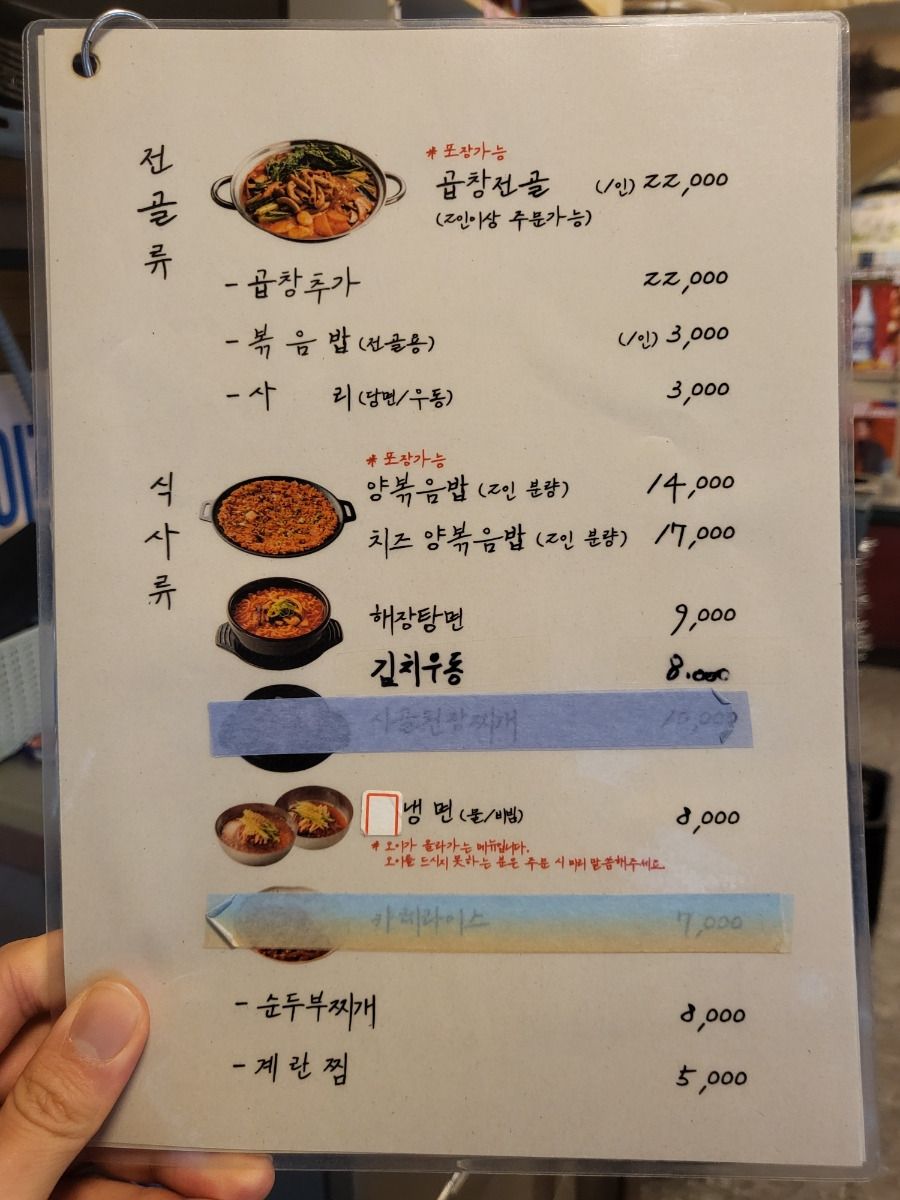 전골류
* 포장가능
곱창전골 (1인) 22,000
(2인이상 주문가능)
- 곱창추가 22,000
- 볶음밥 (전골용) (1인) 3,000
- 사리 (당면/우동) 3,000
식사류
* 포장가능
양볶음밥 (2인 분량) 14,000
치즈 양볶음밥 (2인 분량) 17,000
해장탕면 9,000
김치우동 8.000
사골된장찌개 10,000
냉면 (물/비빔) 8,000
* 오이가 올라가는 메뉴입니다.
오이를 드시지 못하는 분은 주문 시 미리 말씀해주세요.
카레라이스 7,000
- 순두부찌개 8,000
- 계란찜 5,000